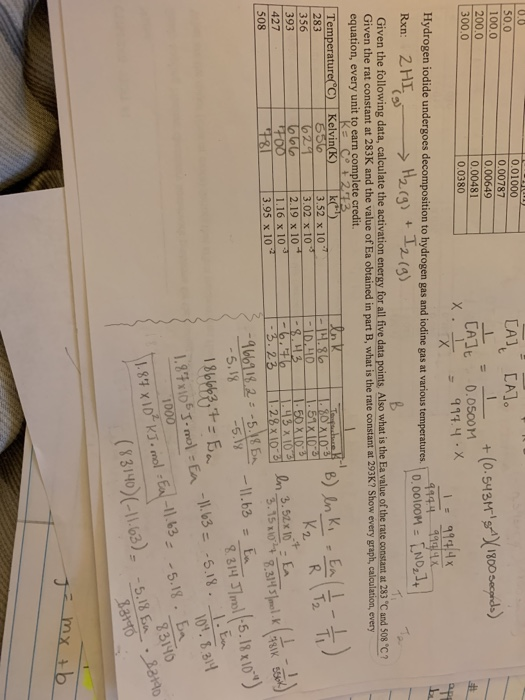 0.0 0.01000
50.0 0.00787
100.0 0.00649
200.0 0.00481
300.0 0.0380
[A]t [A]o
1/[A]t = 1/0.0500M + (0.543M⁻¹s⁻¹)(1800seconds)
X · 1/X = 994.4 · X
0.00100M = [NO2]t
Hydrogen iodide undergoes decomposition to hydrogen gas and iodine gas at various temperatures.
Rxn: 2HI(g) → H2(g) + I2(g)
B
Given the following data, calculate the activation energy for all five data points. Also what is the Ea value of the rate constant at 283 °C and 508 °C?
Given the rat constant at 283K and the value of Ea obtained in part B, what is the rate constant at 293K? Show every graph, calculation, every
equation, every unit to earn complete credit.
K = C° + 273
Temperature(°C) Kelvin(K) ln K
283 556 3.52 x 10⁻⁷ -14.86 1.80 x 10⁻³
356 629 3.02 x 10⁻⁵ -10.40 1.59 x 10⁻³
393 666 2.19 x 10⁻⁴ -8.43 1.50 x 10⁻³
427 700 1.16 x 10⁻³ -6.76 1.43 x 10⁻³
508 781 3.95 x 10⁻² -3.23 1.28 x 10⁻³
B) ln K1/K2 = Ea/R (1/T2 - 1/T1)
-11.63 = Ea/8.314 J/mol (-5.18 x 10⁻⁴)
-966918.2 = -5.18 Ea
-5.18 -5.18
186663.7 = Ea
1.87 x 10⁵ J · mol = Ea
1000
1.87 x 10² KJ · mol = Ea
-11.63 = -5.18 · Ea/83140
(83140)(-11.63) = -5.18 Ea · 83140
83140
y = mx + b